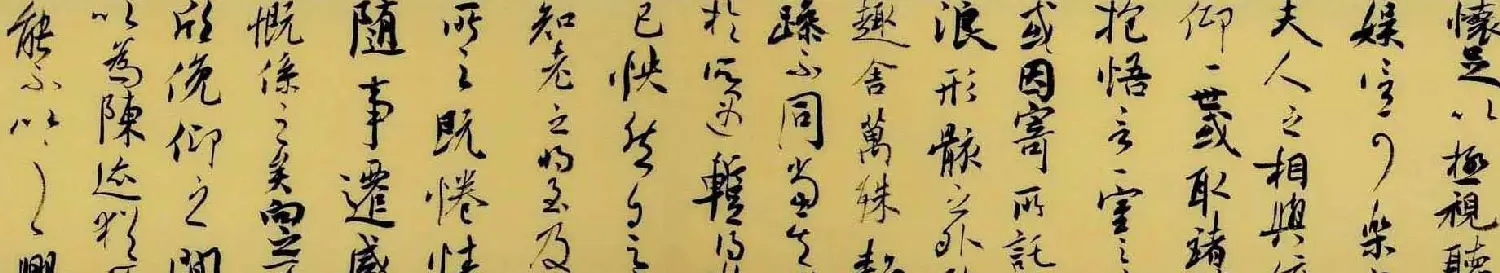 懷足以極視聽
娛信可樂
夫人之相與
仰一世或取諸
抱悟言一室之
或因寄所託
浪形骸之外
趣舍萬殊
躁不同當其
於所遇暫得
己怏然自足
知老之將至及
所之既惓情
隨事遷感
慨係之矣向之
欣俛仰之間
以為陳迹猶
能不以之興